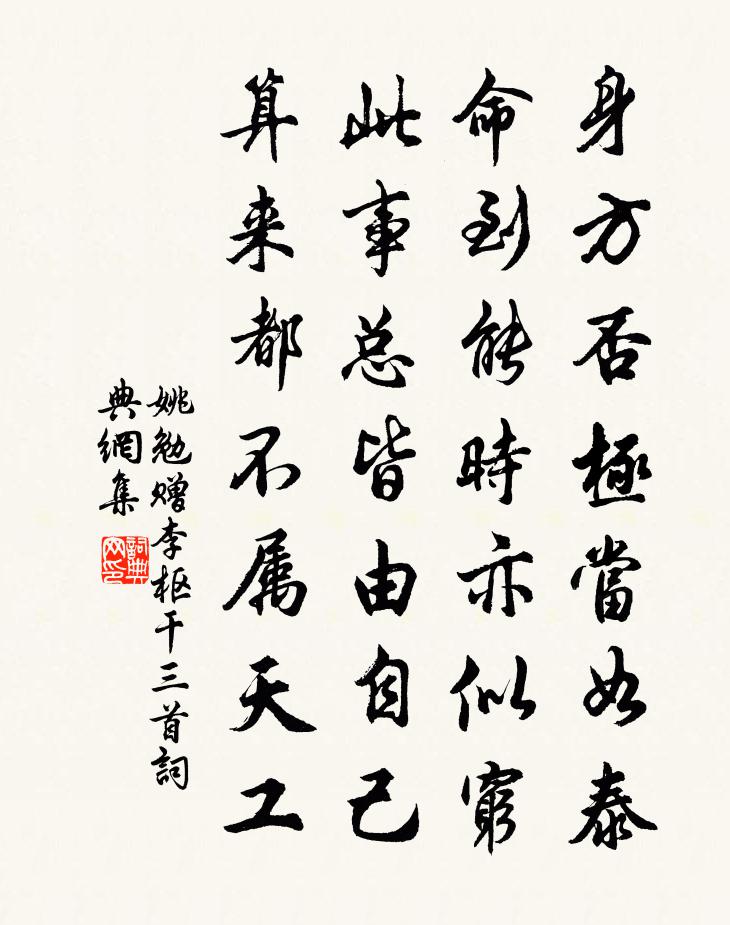 身方否極當如泰
命到能時亦似窮
此事总皆由自己
算来都不属天工
姚勉赠李枢干三首詞
典網集
詞典网印